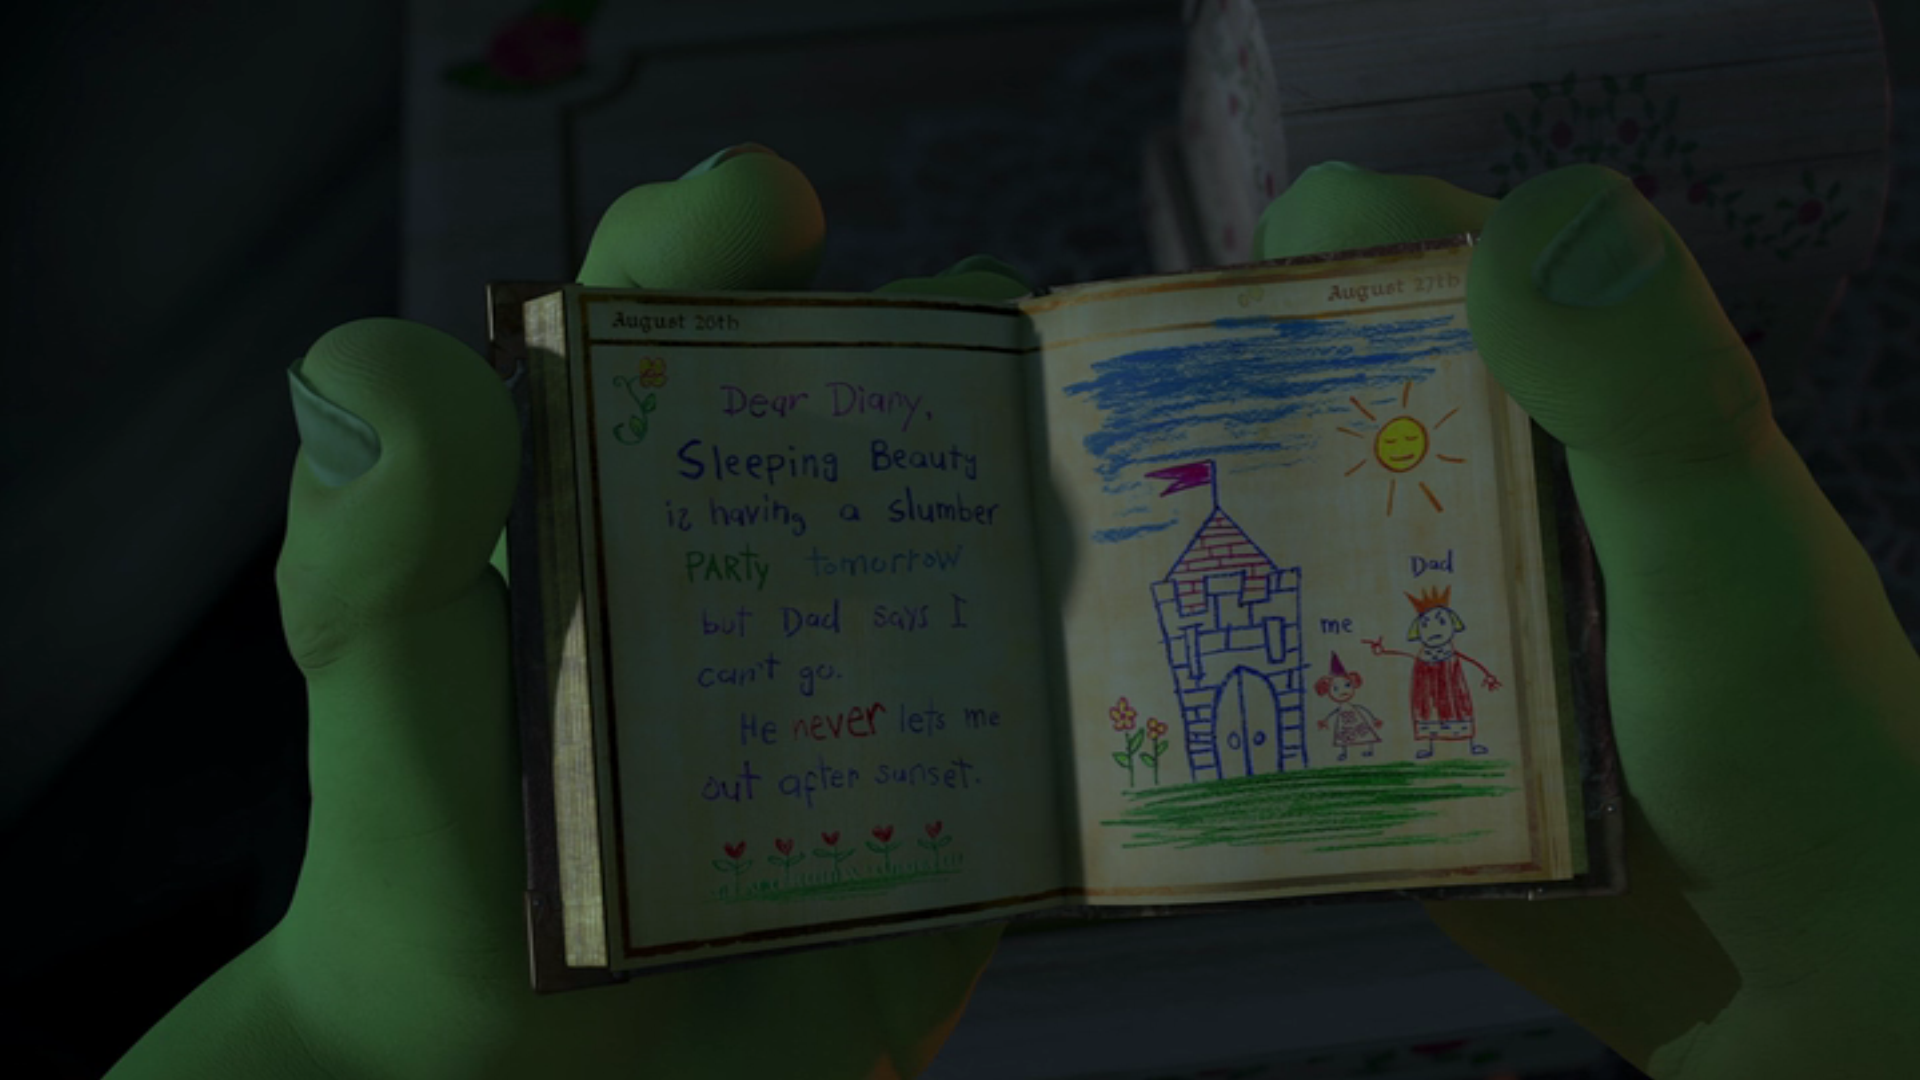 August 26th
Dear Diary,
Sleeping Beauty
is having a slumber
PARTy tomorrow
but Dad says I
can't go.
He never lets me
out after sunset.
August 27th
Dad
me